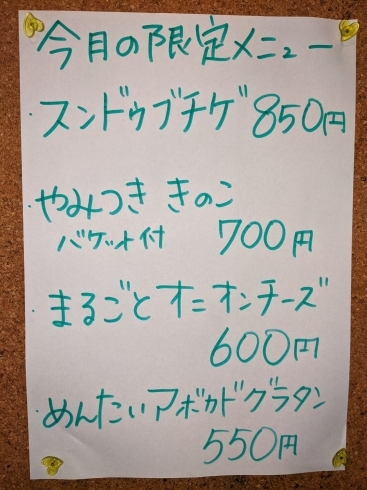 今月の限定メニュー
・スンドゥブチゲ 850円
・やみつき きのこ
バケット付 700円
・まるごとオニオンチーズ
600円
・めんたいアボカドグラタン
550円